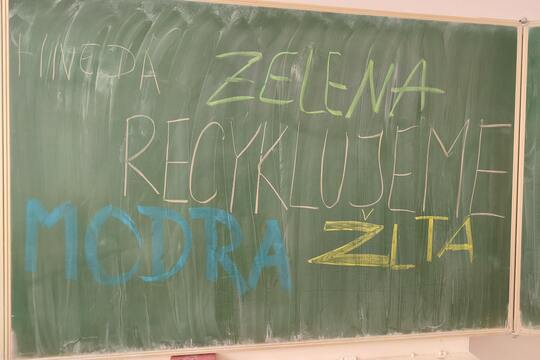 HNEDA ZELENA
RECYKLUJEME
MODRA ŽLTA